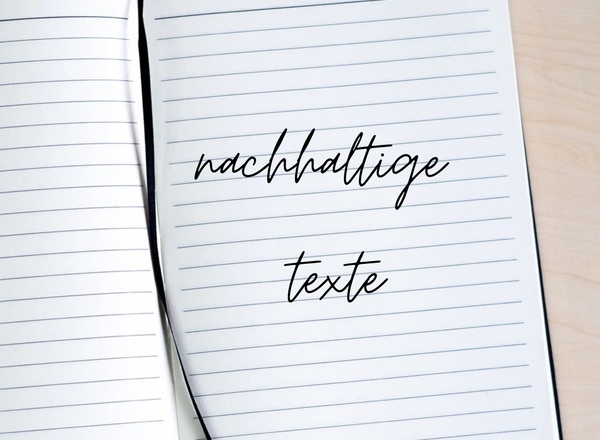 nachhaltige
texte